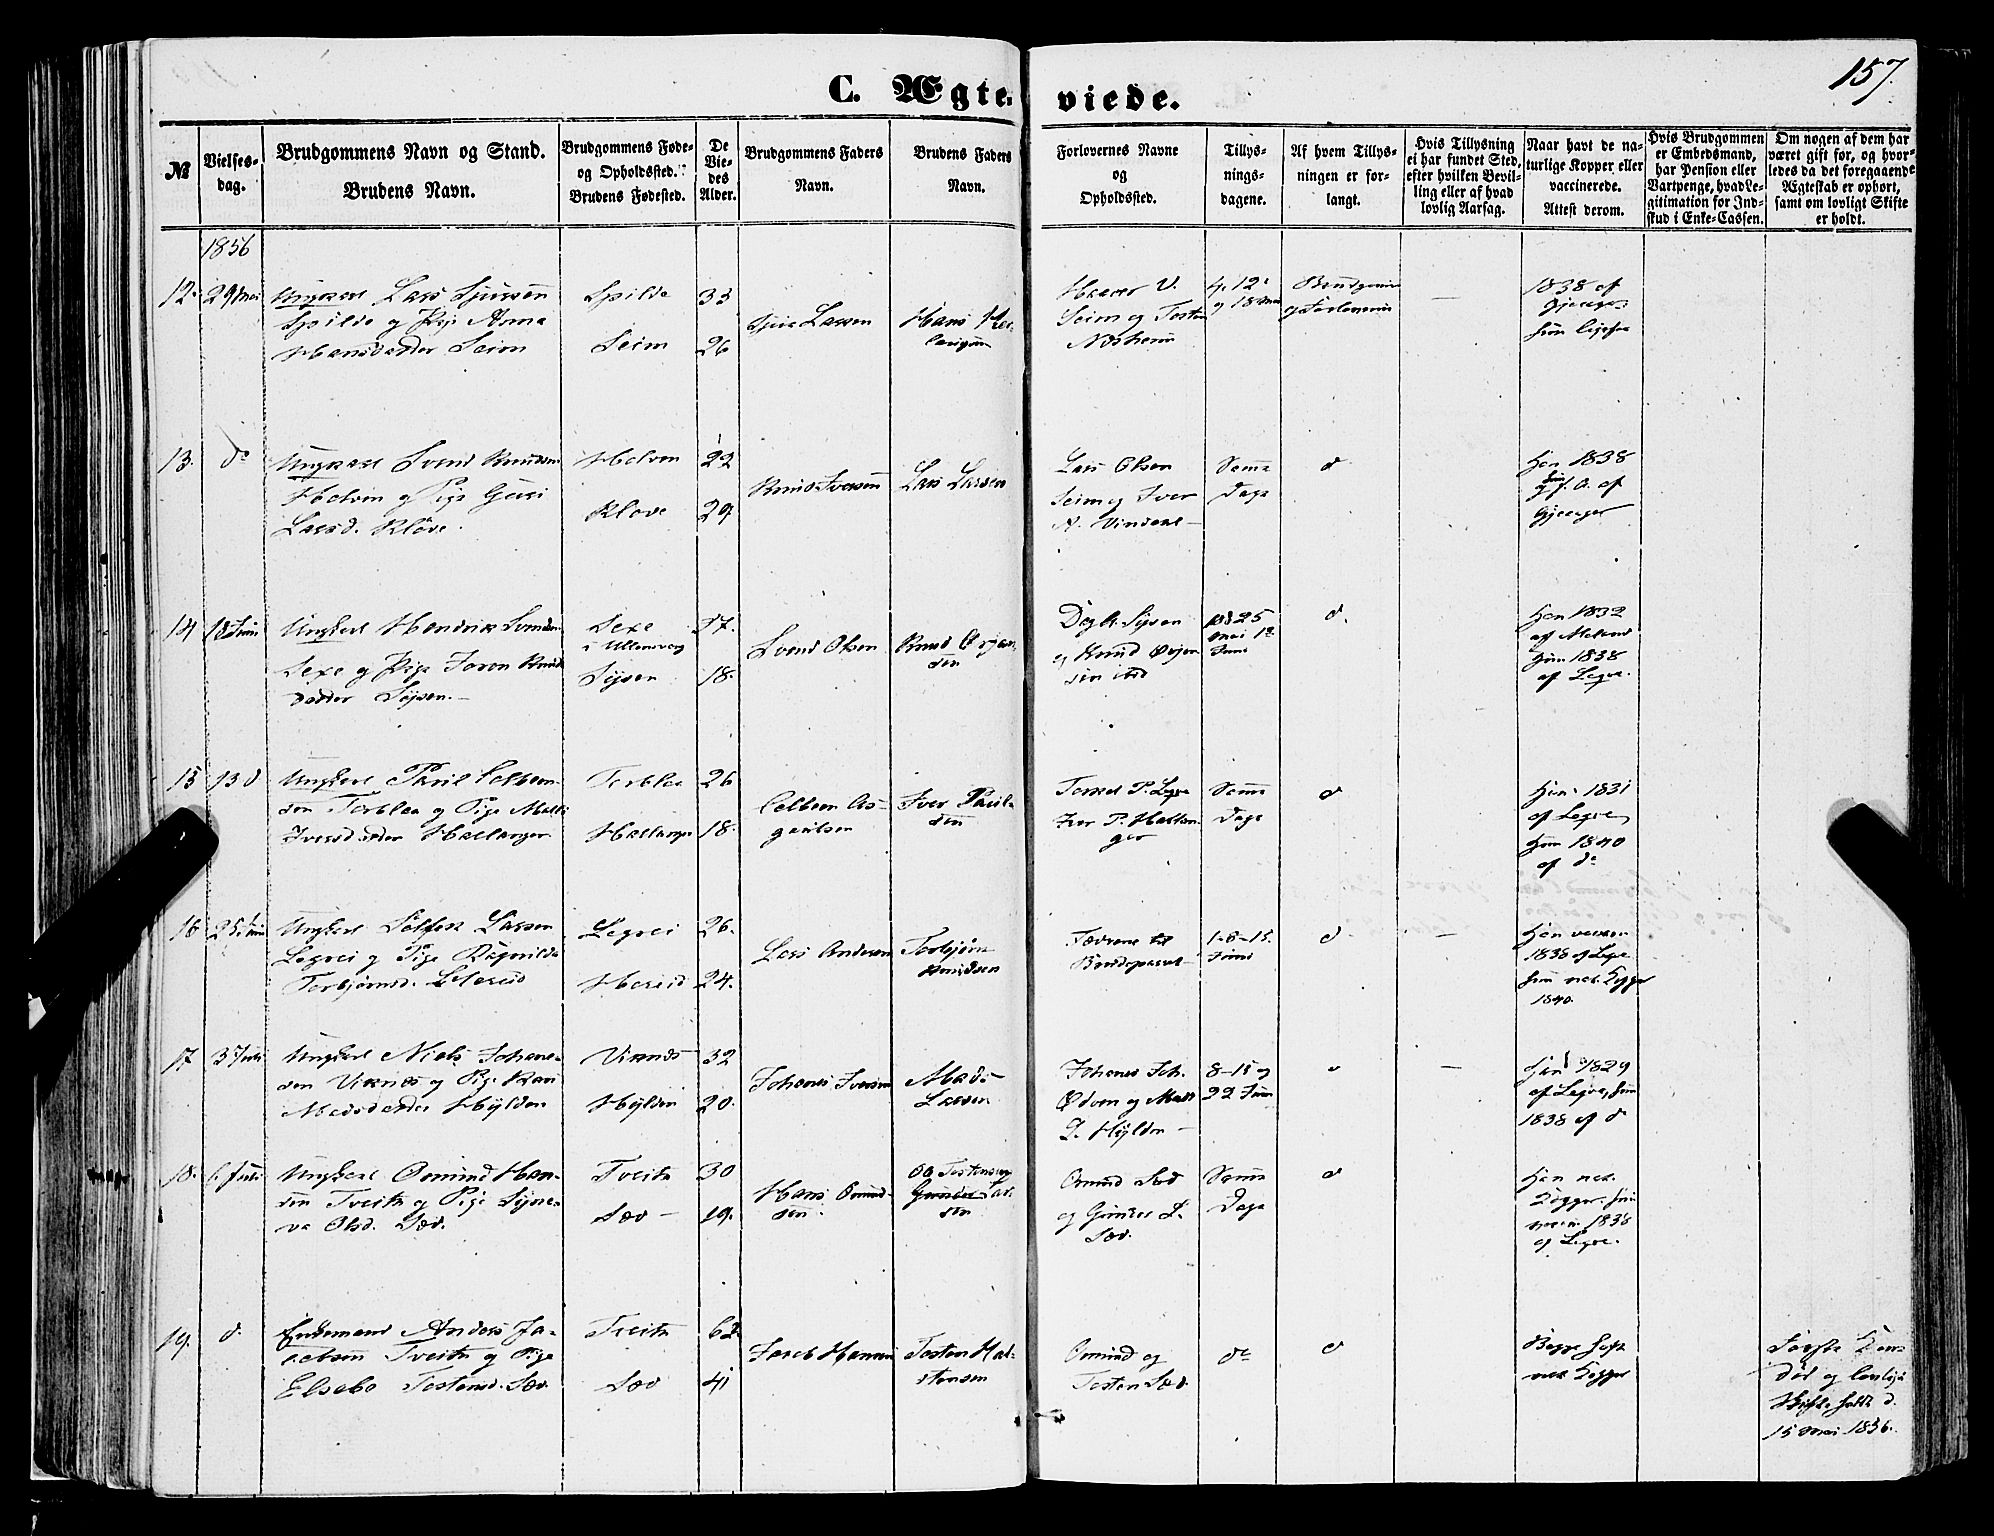 157.
C. Ægte-viede.
№
Vielses-
dag.
Brudgommens Navn og Stand.
Brudens Navn.
Brudgommens Føde-
og Opholdssted.
Brudens Fødested.
De
Vie-
des
Alder.
Brudgommens Faders
Navn.
Brudens Faders
Navn.
Forlovernes Navne
og
Opholdssted.
Tillys-
nings-
dagene.
Af hvem Tillys-
ningen er for-
langt.
Hvis Tillysning
ei har fundet Sted,
efter hvilken Bevil-
ling eller af hvad
lovlig Aarsag.
Naar havt de na-
turlige Kopper eller
vaccinerede.
Attest derom.
Hvis Brudgommen
er Embedsmand,
har Pension eller
Vartpenge, hvad Le-
gitimation for Ind-
skud i Enke-Cassen.
Om nogen af dem har
været gift før, og hvor-
ledes da det foregaaende
Ægteskab er ophørt,
samt om lovligt Skifte
er holdt.
1856
12. 29 Mai
Ungkarl Lars Sjursen
Spilde og Pige Anna
Hansdatter Seim
Spilde
Seim
33
26
Sjur Larsen
Hans
Seim og Torsten
Næsheim
4. 12.
og 18 Mai
Brudgommen
og Forloverne
—
1838 af
13. d°
Ungkarl Svend Knudsen
Halven og Pige Guri
Larsd. Kløve.
Halven
Kløve
22
29.
Knud Iversen
Lars Larsen
Lars Olsen
Seim og Iver
A. Vindal —
Samme
Dage
d.
—
Han 1838
Hun
og f. A. af
14. 18 Juni
Ungkarl Hendrik Svends
Sexe og Pige Joron Knuds
datter Sysen. —
Sexe
i Ullensvang
Sysen
27.
18.
Svend Olsen
Knud Ørjan-
sen
Sysen
og Knud Ørjan
sen ibd
25
Mai 1ste
Juni
d.
Han 1832
Hun 1838
af Legre.
15 13 d
Ungkarl Paul Colbeen-
sen Torblaa og Pige
Iversdatter Hallanger
Torblaa
Hallanger
26
18.
Colbeen As-
gautsen
Iver Paul-
sen
Torsten P. Legre
Iver P. Hallan-
ger
Samme
Dage
d
Han 1831
af Legre,
Hun 1840
af d°
16 25 Juni
Ungkarl Larsen
Legrei og Pige Ragnilda
Torbjørnsd.
Legrei
Hereid
26.
24.
Lars Andersen
Torbjørn
Knudsen
Fædrene til
Brudeparret
1-8-15.
Juni
d.
—
Han vaccin
1838 af Legre
Hun nat. Kopper
1840.
17 3 Juli
Ungkarl Niels Johane-
sen Viknæs og Pige Kari
Madsdatter Hylden
Viknæs
Hylden
32
20.
Johanes Iversen
Mads
Larsen
Johanes Joh.
Ødven og Mads
L. Hylden —
8-15 og
22 Juni
d
—
Han 1829
af Legre, Hun
1838 af d
18. Juli
Ungkarl Omund Han-
sen Tveito og Pige Synne-
va Olsd. Sæd.
Tveito
Sæd —
30
19.
Hans Omund-
sen.
Ole Torstensen
Omund Sæd
og Gunder L.
Sæd.
Samme
Dage
d
Han nat.
Kopper. Hun
vaccin. 1838
af Legre.
19. d.
Enkemand Anders Ja-
cobsen Tveito og Pige
Elsebe Torstensd. Sæd
Tveito
Sæd
62
41
Jacob Hansen
Torsten Hal-
stensen
Omund og
Torsten Sæd.
d°
d
Begge havt
nat. Kopper
Første Kone
død og lovligt
Skifte holdt d.
15 Mai 1856.